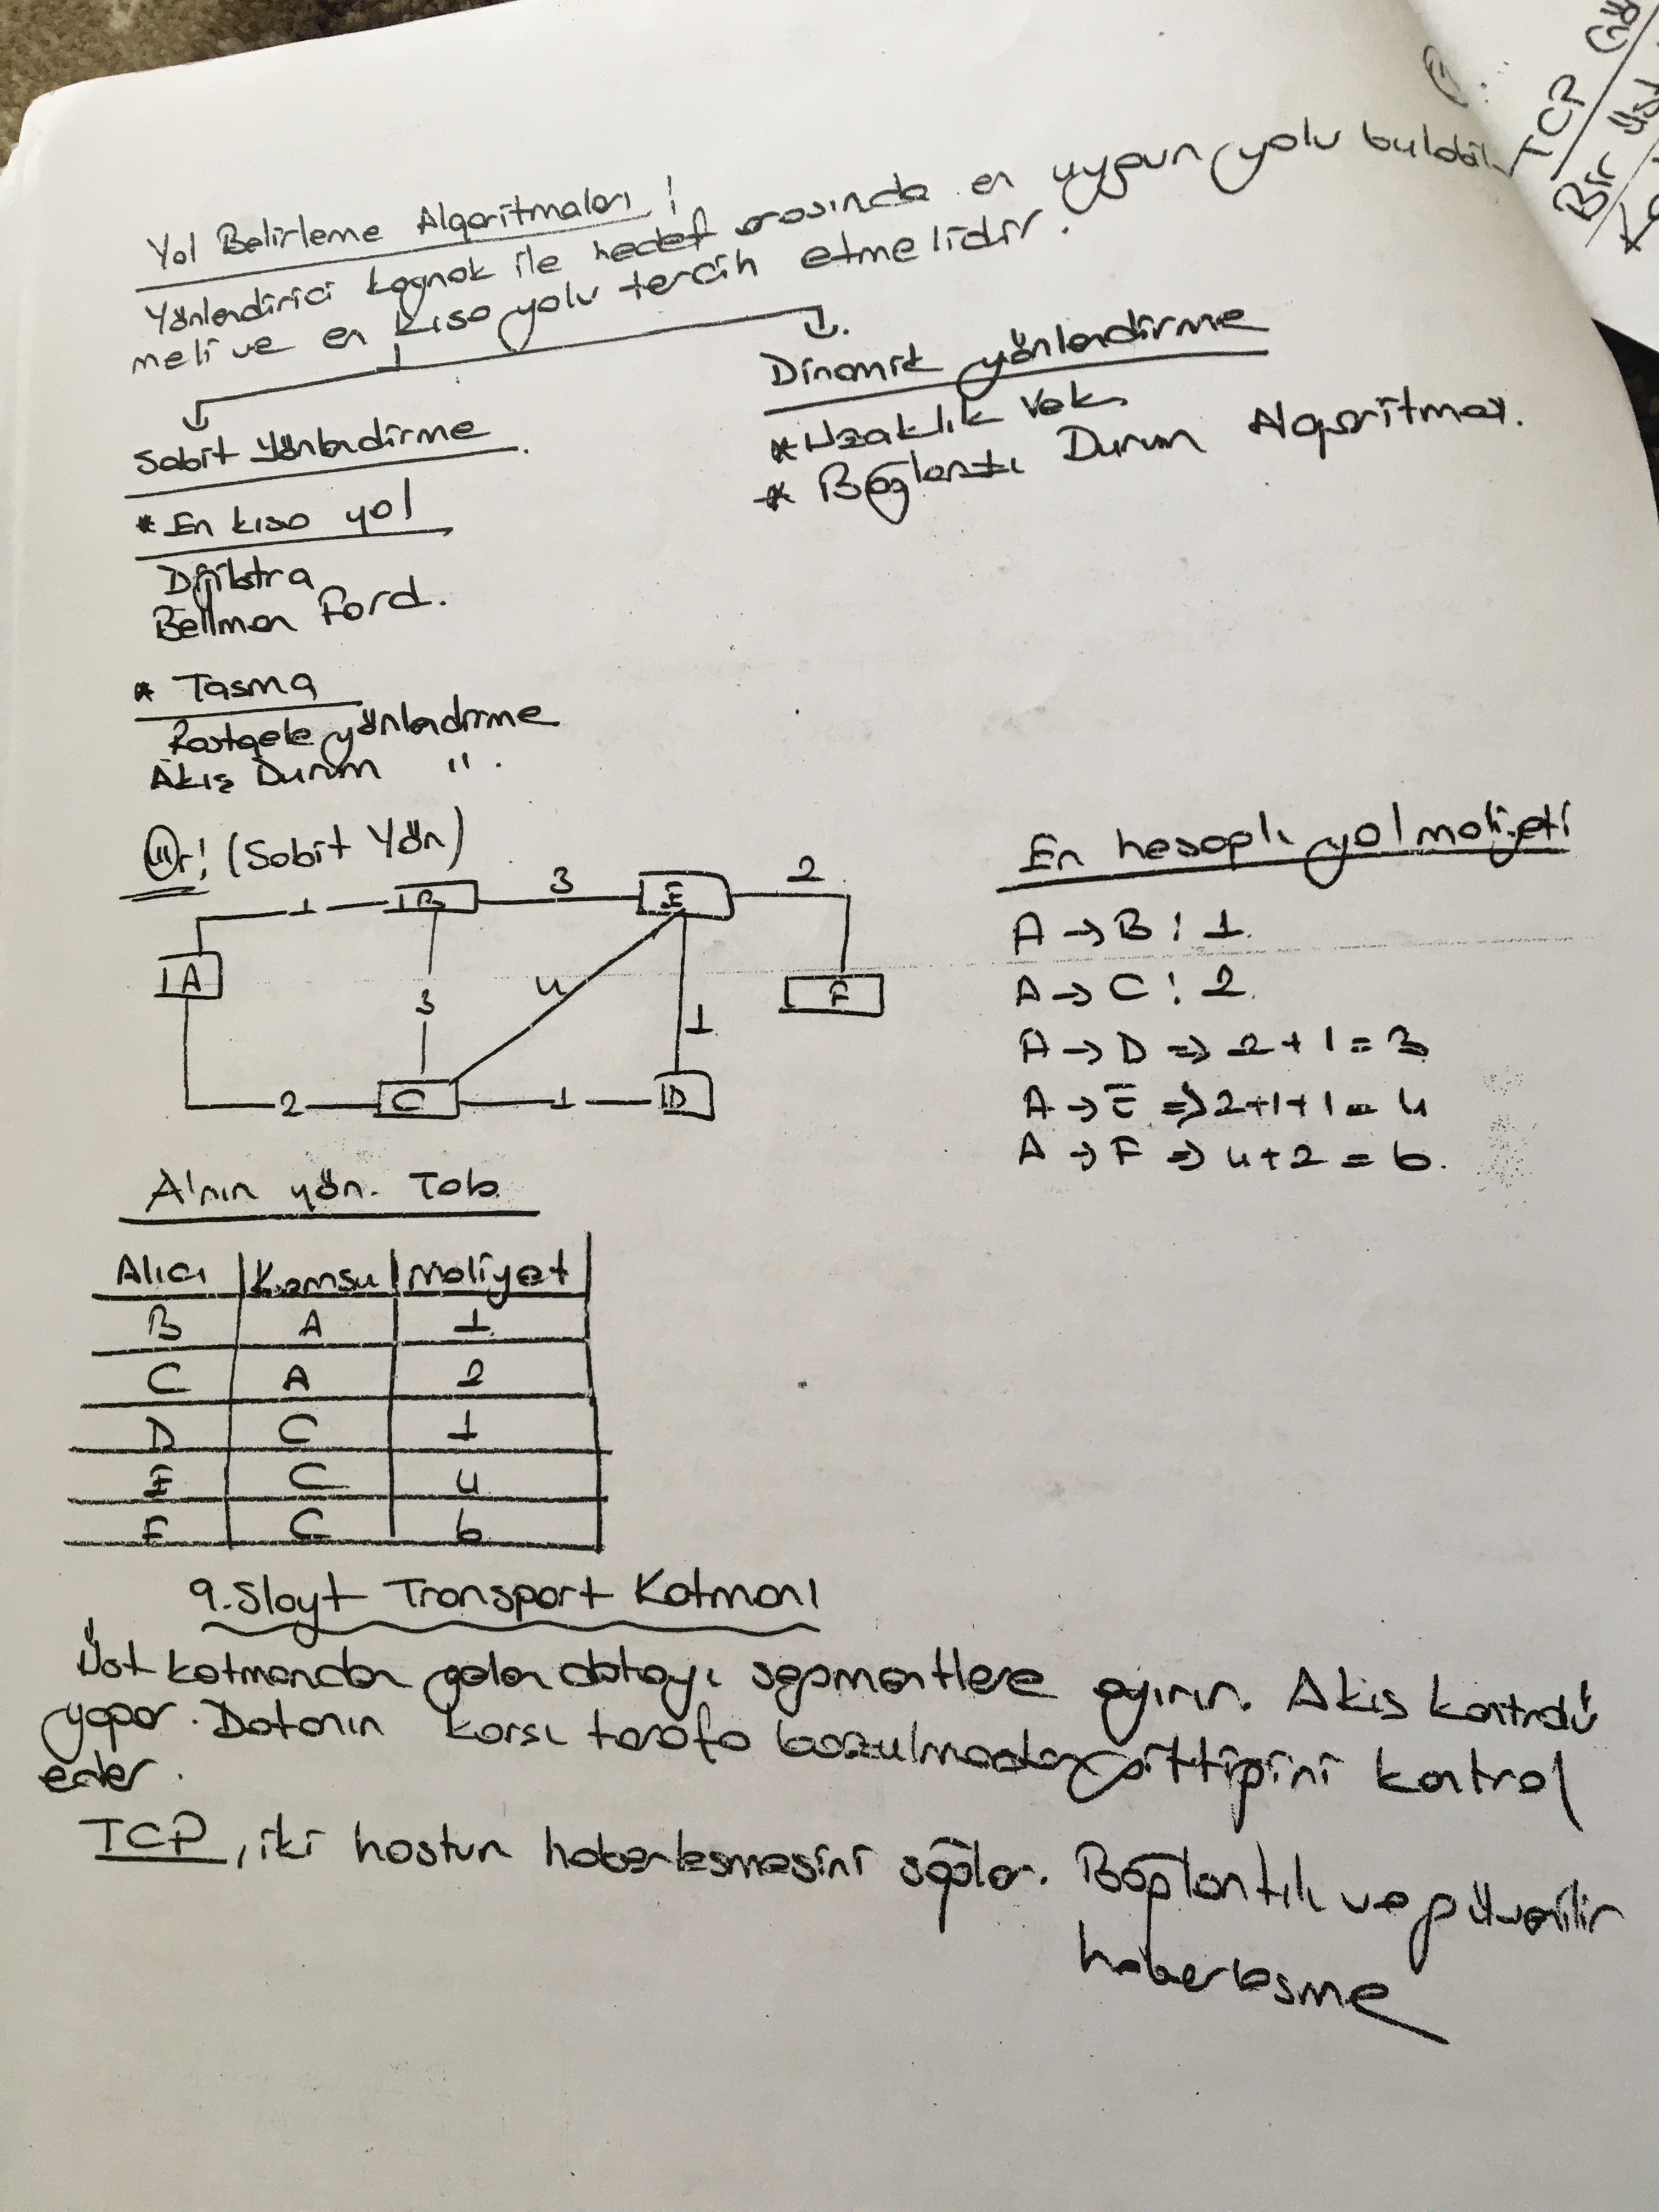 Yol Belirleme Algoritmaları:
Yönlendirici kaynak ile hedef arasında en uygun yolu bulabil-
meli ve en kısa yolu tercih etmelidir.
Sabit Yönlendirme
* En kısa yol
Dijikstra
Bellman Ford.
* Tasma
Rastgele yönlendirme
Akış Durum " .
Dinamik yönlendirme
* Uzaklık Vek.
* Bağlantı Durum Algoritması.
Ör: (Sabit Yön)
1 B 3 E 2
A 3 4 1 F
2 C 1 D
En hesaplı yol maliyeti
A → B : 1
A → C : 2
A → D ⇒ 2+1=3
A → E ⇒ 2+1+1=4
A → F ⇒ 4+2=6.
A'nın yön. Tab.
Alıcı | Komsu | Maliyet
B A 1
C A 2
D C 1
E C 4
F C 6
9.Slayt Transport Katmanı
Üst katmandan gelen datayı segmentlere ayırır. Akıs kontrolü
yapar. Datanın karsı tarafa bozulmadan gittigini kontrol
eder.
TCP, iki hostun haberlesmesini sağlar. Bağlantılı ve güvenilir
haberlesme
TCP
Bir Üst